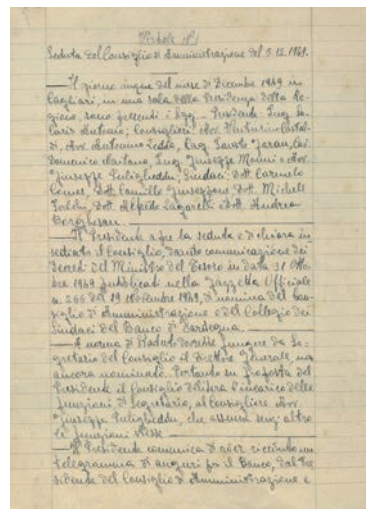 Verbale N. 1
Seduta del Consiglio di Amministrazione del 5.12.1949.
Il giorno cinque del mese di Dicembre 1949 in
Cagliari, in una sala della Presidenza della Re-
gione, sono presenti i Sigg. Presidente Ing.
Antonio; Consiglieri: Avv. Venturino Castal-
di, Avv. Antonio Ledda, Cav.
Domenico Maitano, Ing. Giuseppe Manni e Avv.
Giuseppe Puligheddu; Sindaci: Dott. Carmelo
Comes, Dott. Camillo Dott. Michele
Dott. Alfredo Lazzarelli e Dott. Andrea
Borghesan.
Il Presidente apre la seduta e dichiara in-
sediato il Consiglio, dando comunicazione dei
Decreti del Ministro del Tesoro in data 31 Otto-
bre 1949 pubblicati nella Gazzetta Ufficiale
n. 266 del 19 Novembre 1949, di nomina del Con-
siglio di Amministrazione e del Collegio dei
Sindaci del Banco di Sardegna.
A norma di Statuto dovrebbe fungere da Se-
gretario del Consiglio il Direttore Generale, non
ancora nominato. Pertanto su proposta del
Presidente il Consiglio delibera l'incarico delle
funzioni di Segretario, al Consigliere Avv.
Giuseppe Puligheddu, che assume senz'altro
le funzioni stesse.
Il Presidente comunica di aver ricevuto un
telegramma di auguri per il Banco, dal Pre-
sidente del Consiglio di Amministrazione e